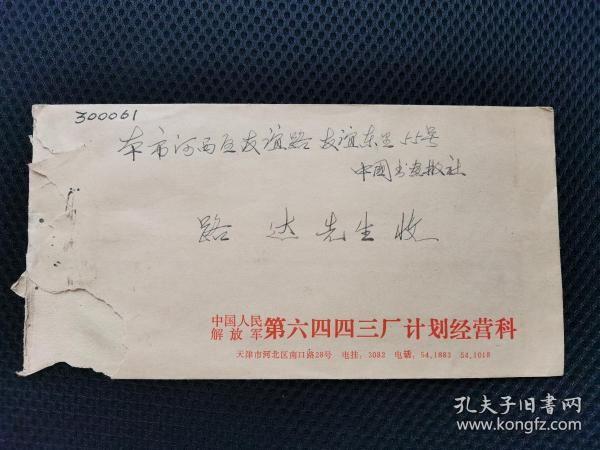 300061
本市河西区友谊路友谊东里55号
中國书画报社
路达先生收
中国人民
解放军
第六四四三厂计划经营科
天津市河北区南口路28号 电挂：3082 电话：54,1883 54,1018
孔夫子旧书网
www.kongfz.com